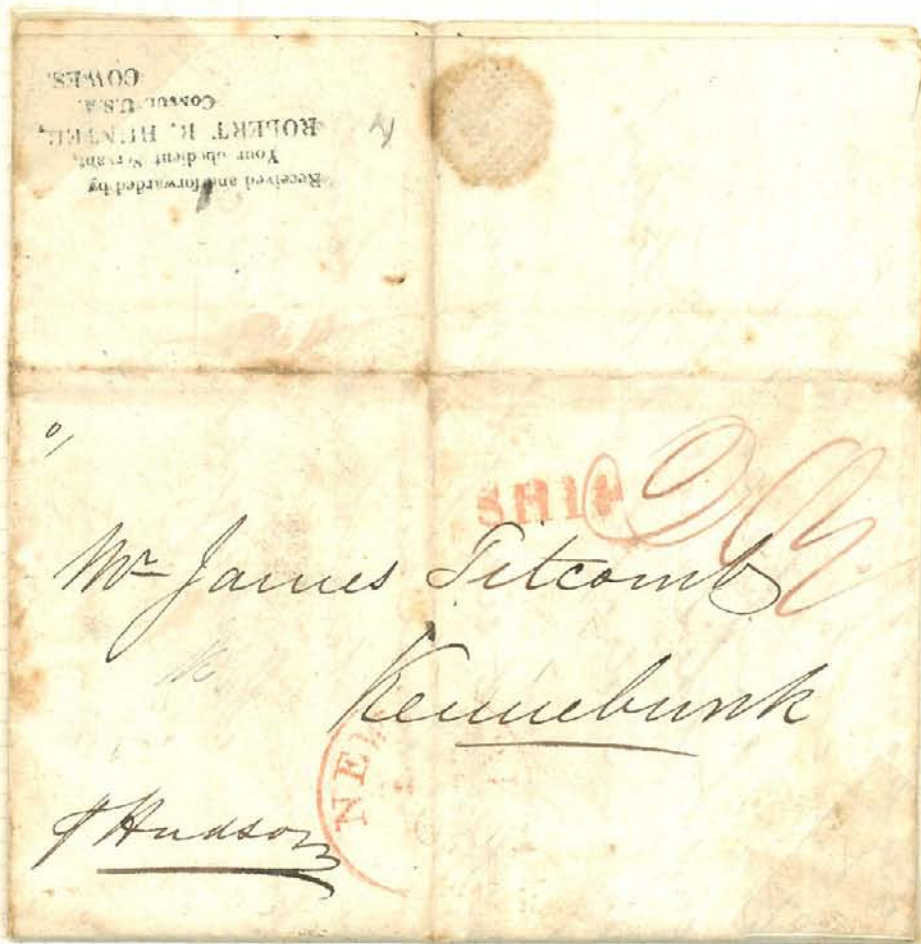 Received and forwarded by
Your obedient Servant,
ROBERT R. HUNTER,
CONSUL U.S.A.
COWES.
SHIP
Mr James Titcomb
Kennebunk
NEW
p Hudson